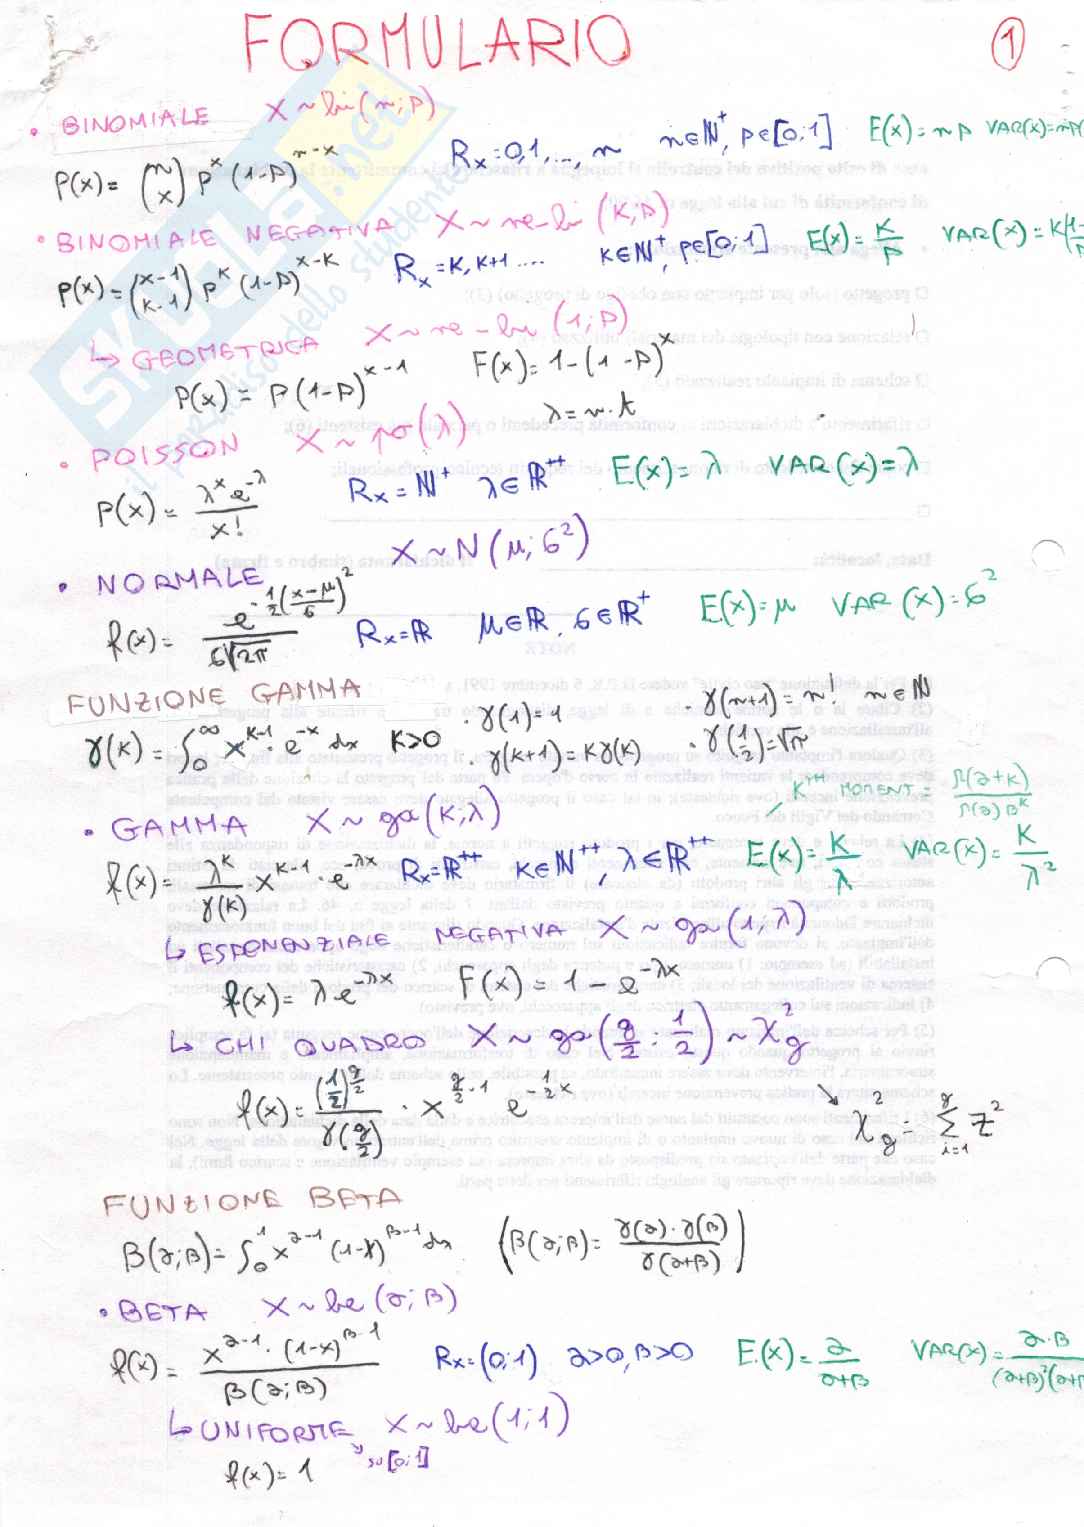 FORMULARIO
1
• BINOMIALE X ~ bi(n; p)
P(x) = (n x) p^x (1-p)^{n-x} R_x = 0,1,..., n n∈ℕ⁺, p∈[0;1] E(x) = np VAR(x) = np(
• BINOMIALE NEGATIVA X ~ ne-bi (K; p)
P(x) = (x-1 K-1) p^K (1-p)^{x-K} R_x = K, K+1 .... K∈ℕ⁺, p∈[0;1] E(x) = K/p VAR(x) = K(1-
↳ GEOMETRICA X ~ ne-bi (1; p)
P(x) = p(1-p)^{x-1} F(x) = 1-(1-p)^x
λ = n·t
• POISSON X ~ po(λ)
P(x) = λ^x e^{-λ} / x! R_x = ℕ⁺ λ∈ℝ⁺⁺ E(x) = λ VAR(x) = λ
• NORMALE X ~ N(μ; σ²)
f(x) = e^{-1/2((x-μ)/σ)²} / σ√2π R_x = ℝ μ∈ℝ, σ∈ℝ⁺ E(x) = μ VAR(x) = σ²
FUNZIONE GAMMA
γ(K) = ∫₀^∞ x^{K-1} · e^{-x} dx K>0
· γ(1) = 1 · γ(n+1) = n! n∈ℕ
· γ(K+1) = Kγ(K) · γ(1/2) = √π
Kᵀᴴ MOMENT = Γ(α+K) / Γ(α)β^K
• GAMMA X ~ ga(K; λ)
f(x) = λ^K / γ(K) · x^{K-1} · e^{-λx} R_x = ℝ⁺⁺ K∈ℕ⁺⁺, λ∈ℝ⁺⁺ E(x) = K/λ VAR(x) = K/λ²
↳ ESPONENZIALE NEGATIVA X ~ ga(1; λ)
f(x) = λ·e^{-λx} F(x) = 1 - e^{-λx}
↳ CHI QUADRO X ~ ga(g/2 ; 1/2) ~ χ²_g
f(x) = (1/2)^{g/2} / γ(g/2) · x^{g/2 - 1} e^{-1/2 x}
↘ χ²_g = Σ_{i=1}^g Z²
FUNZIONE BETA
B(α; β) = ∫₀¹ x^{α-1} (1-x)^{β-1} dx (B(α; β) = γ(α)·γ(β) / γ(α+β))
• BETA X ~ be(α; β)
f(x) = x^{α-1} · (1-x)^{β-1} / B(α; β) R_x = (0;1) α>0, β>0 E(x) = α / α+β VAR(x) = α·β / (α+β)²(α+β
↳ UNIFORME X ~ be(1;1)
↘ su [0;1]
f(x) = 1
SKUOLA.net
il paradiso dello studente